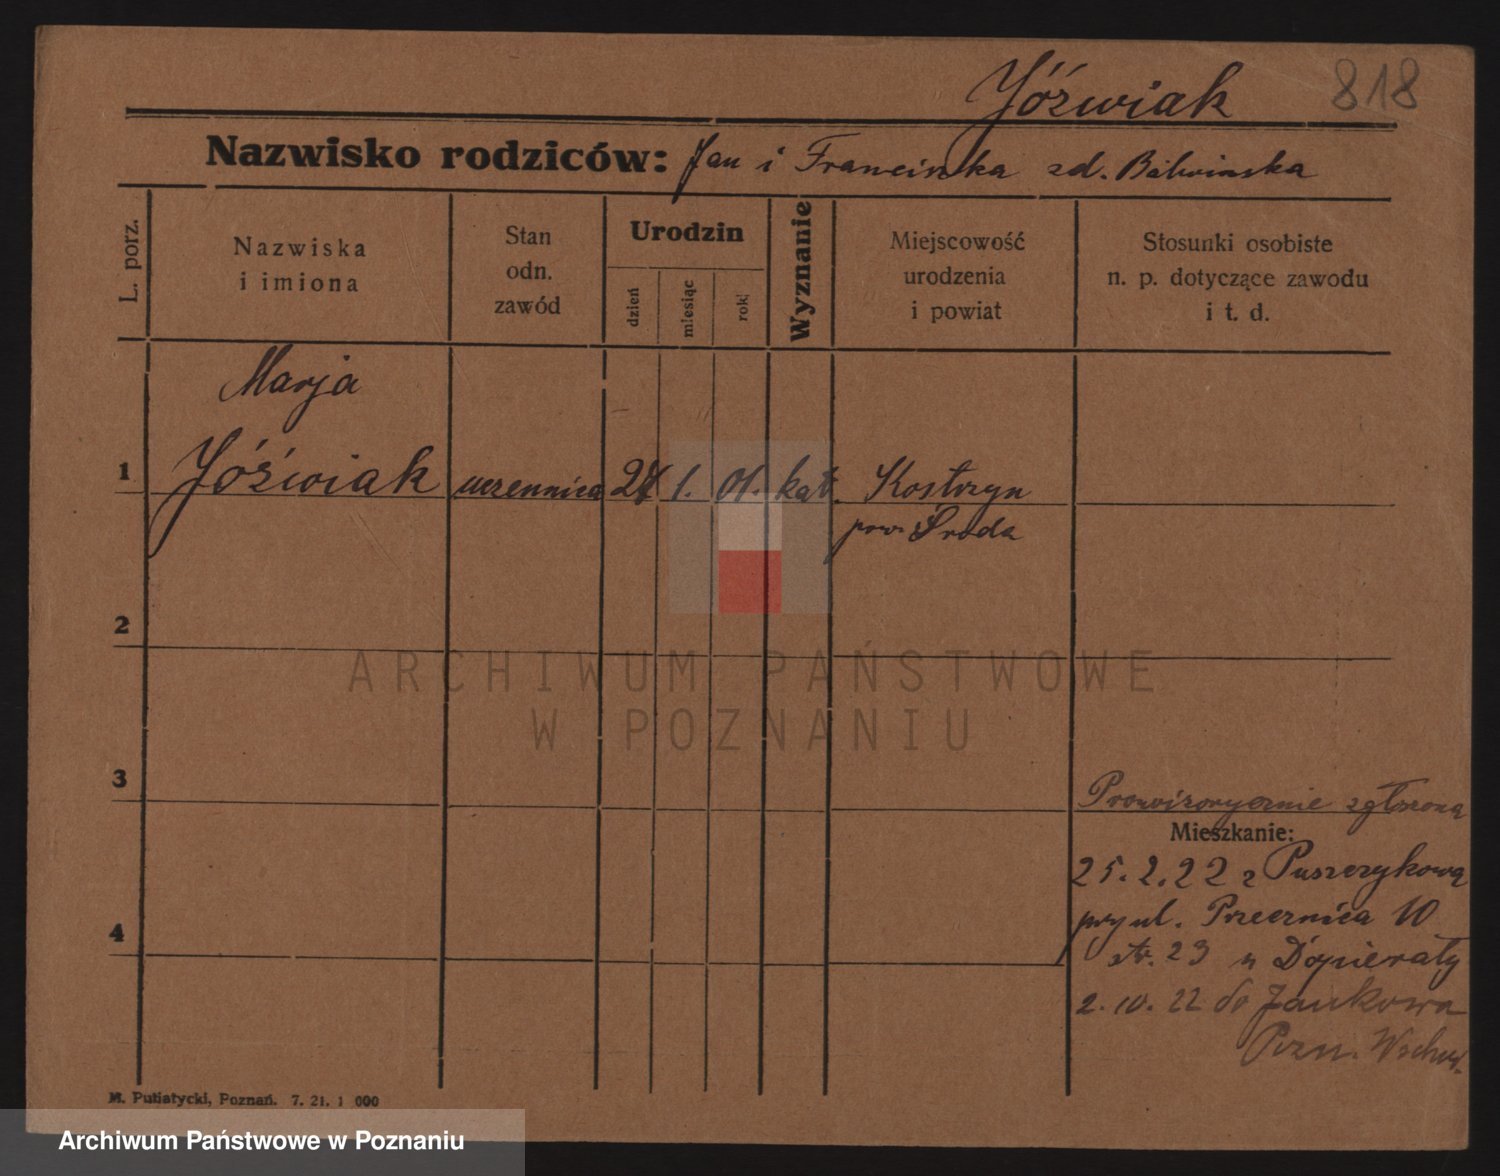 Jóźwiak 818
Nazwisko rodziców: Jan i Franciszka zd.
L. porz.
Nazwiska
i imiona
Stan
odn.
zawód
Urodzin
dzień
miesiąc
rok
Wyznanie
Miejscowość
urodzenia
i powiat
Stosunki osobiste
n. p. dotyczące zawodu
i t. d.
Marja
1 Jóźwiak uczennica 24 1. 01. kat. Kostrzyn
pow. Środa
2
3
Prowizorycznie zgłoszona
Mieszkanie:
25.2.22 z Puszczykowa
przy ul. Przecznica 10
4
str. 23 u Dopierały
2.10.22 do Jankowa
Pozn. Wschod.
M. Putiatycki, Poznań. 7. 21. 1 000
ARCHIWUM PAŃSTWOWE
W POZNANIU
Archiwum Państwowe w Poznaniu